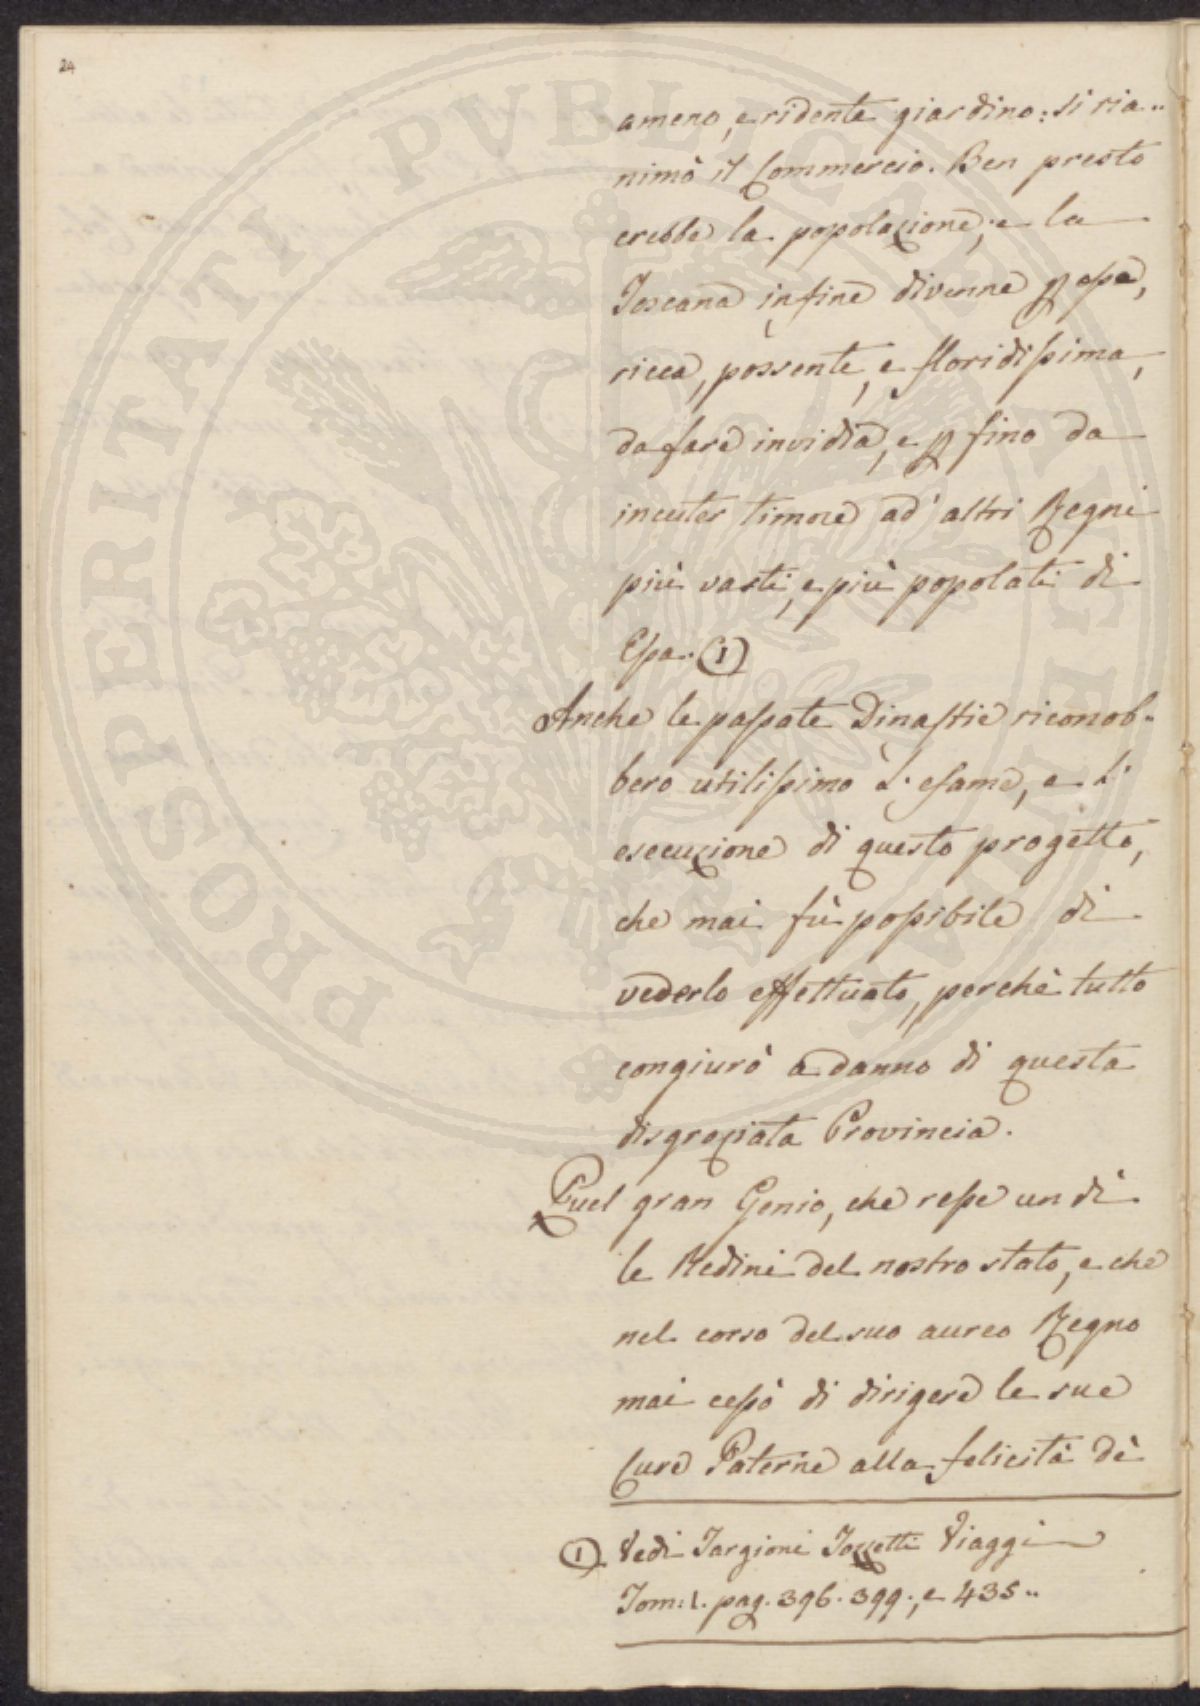 24
ameno, e ridente giardino: si ria..
nimò il Commercio. Ben presto
crebbe la popolazione; e la
Toscana infine divenne p essa,
ricca, possente, e floridissima,
da fare invidia, e p fino da
incuter timore ad' altri Regni
più vasti, e più popolati di
Essa. (1)
Anche le passate Dinastie riconob..
bero utilissimo l'esame, e l'
esecuzione di questo progetto,
che mai fù possibile di
vederlo effettuato, perchè tutto
congiurò a danno di questa
disgraziata Provincia.
Quel gran Genio, che resse un dì
le Redini del nostro stato, e che
nel corso del suo aureo Regno
mai cessò di dirigere le sue
Cure Paterne alla felicità dè
(1) Vedi Targioni Tozzetti Viaggi
Tom: 1. pag. 396. 399., e 435..
PROSPERITATI PUBLICAE AUGENDAE